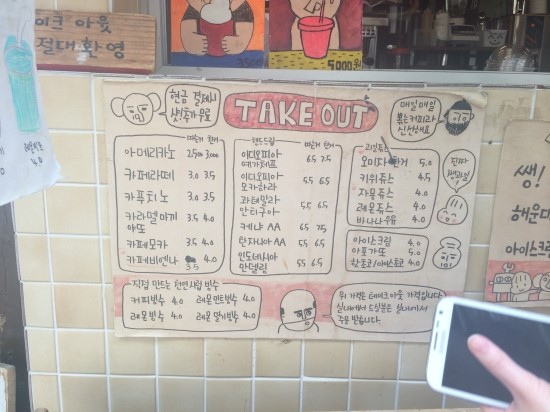 이크 아웃
절대환영
3500원
5000원
현금 결제시
샷추가 무료
TAKE OUT
매일매일
볶는커피라
신선해요
따슨거 찬거
아메리카노 2500 3,000
카페라떼 3.0 3.5
카푸치노 3.0 3.5
카라멜마끼
아또 3.5 4.0
카페모카 3.5 4.0
카페비엔나 3.5 4.0
핸드드립 따슨거 찬거
이디오피아
예가체프 6.5 7.5
이디오피아
모카하라 5.5 6.5
과테말라
안티구아 5.5 6.5
케냐 AA 6.5 7.5
탄자니아 AA 5.5 6.5
인도네시아
만델링 5.5 6.5
과일쥬스
오미자 찬거 5.0
키위쥬스 4.5
자몽쥬스 4.0
레몬쥬스 4.0
바나나우유 4.0
진짜
아이스크림 4.0
아포가또 5.0
핫초코/아이스초코 4.0
직접 만드는 천연사랑 빙수
커피빙수 4.0 레몬민트빙수 4.0
레몬빙수 4.0 레몬딸기빙수 4.0
위 가격은 테이크 아웃 가격입니다.
실내에서 드실분은 실내에서
주문 받습니다.
쌩!
해운대
아이스크림
4.0